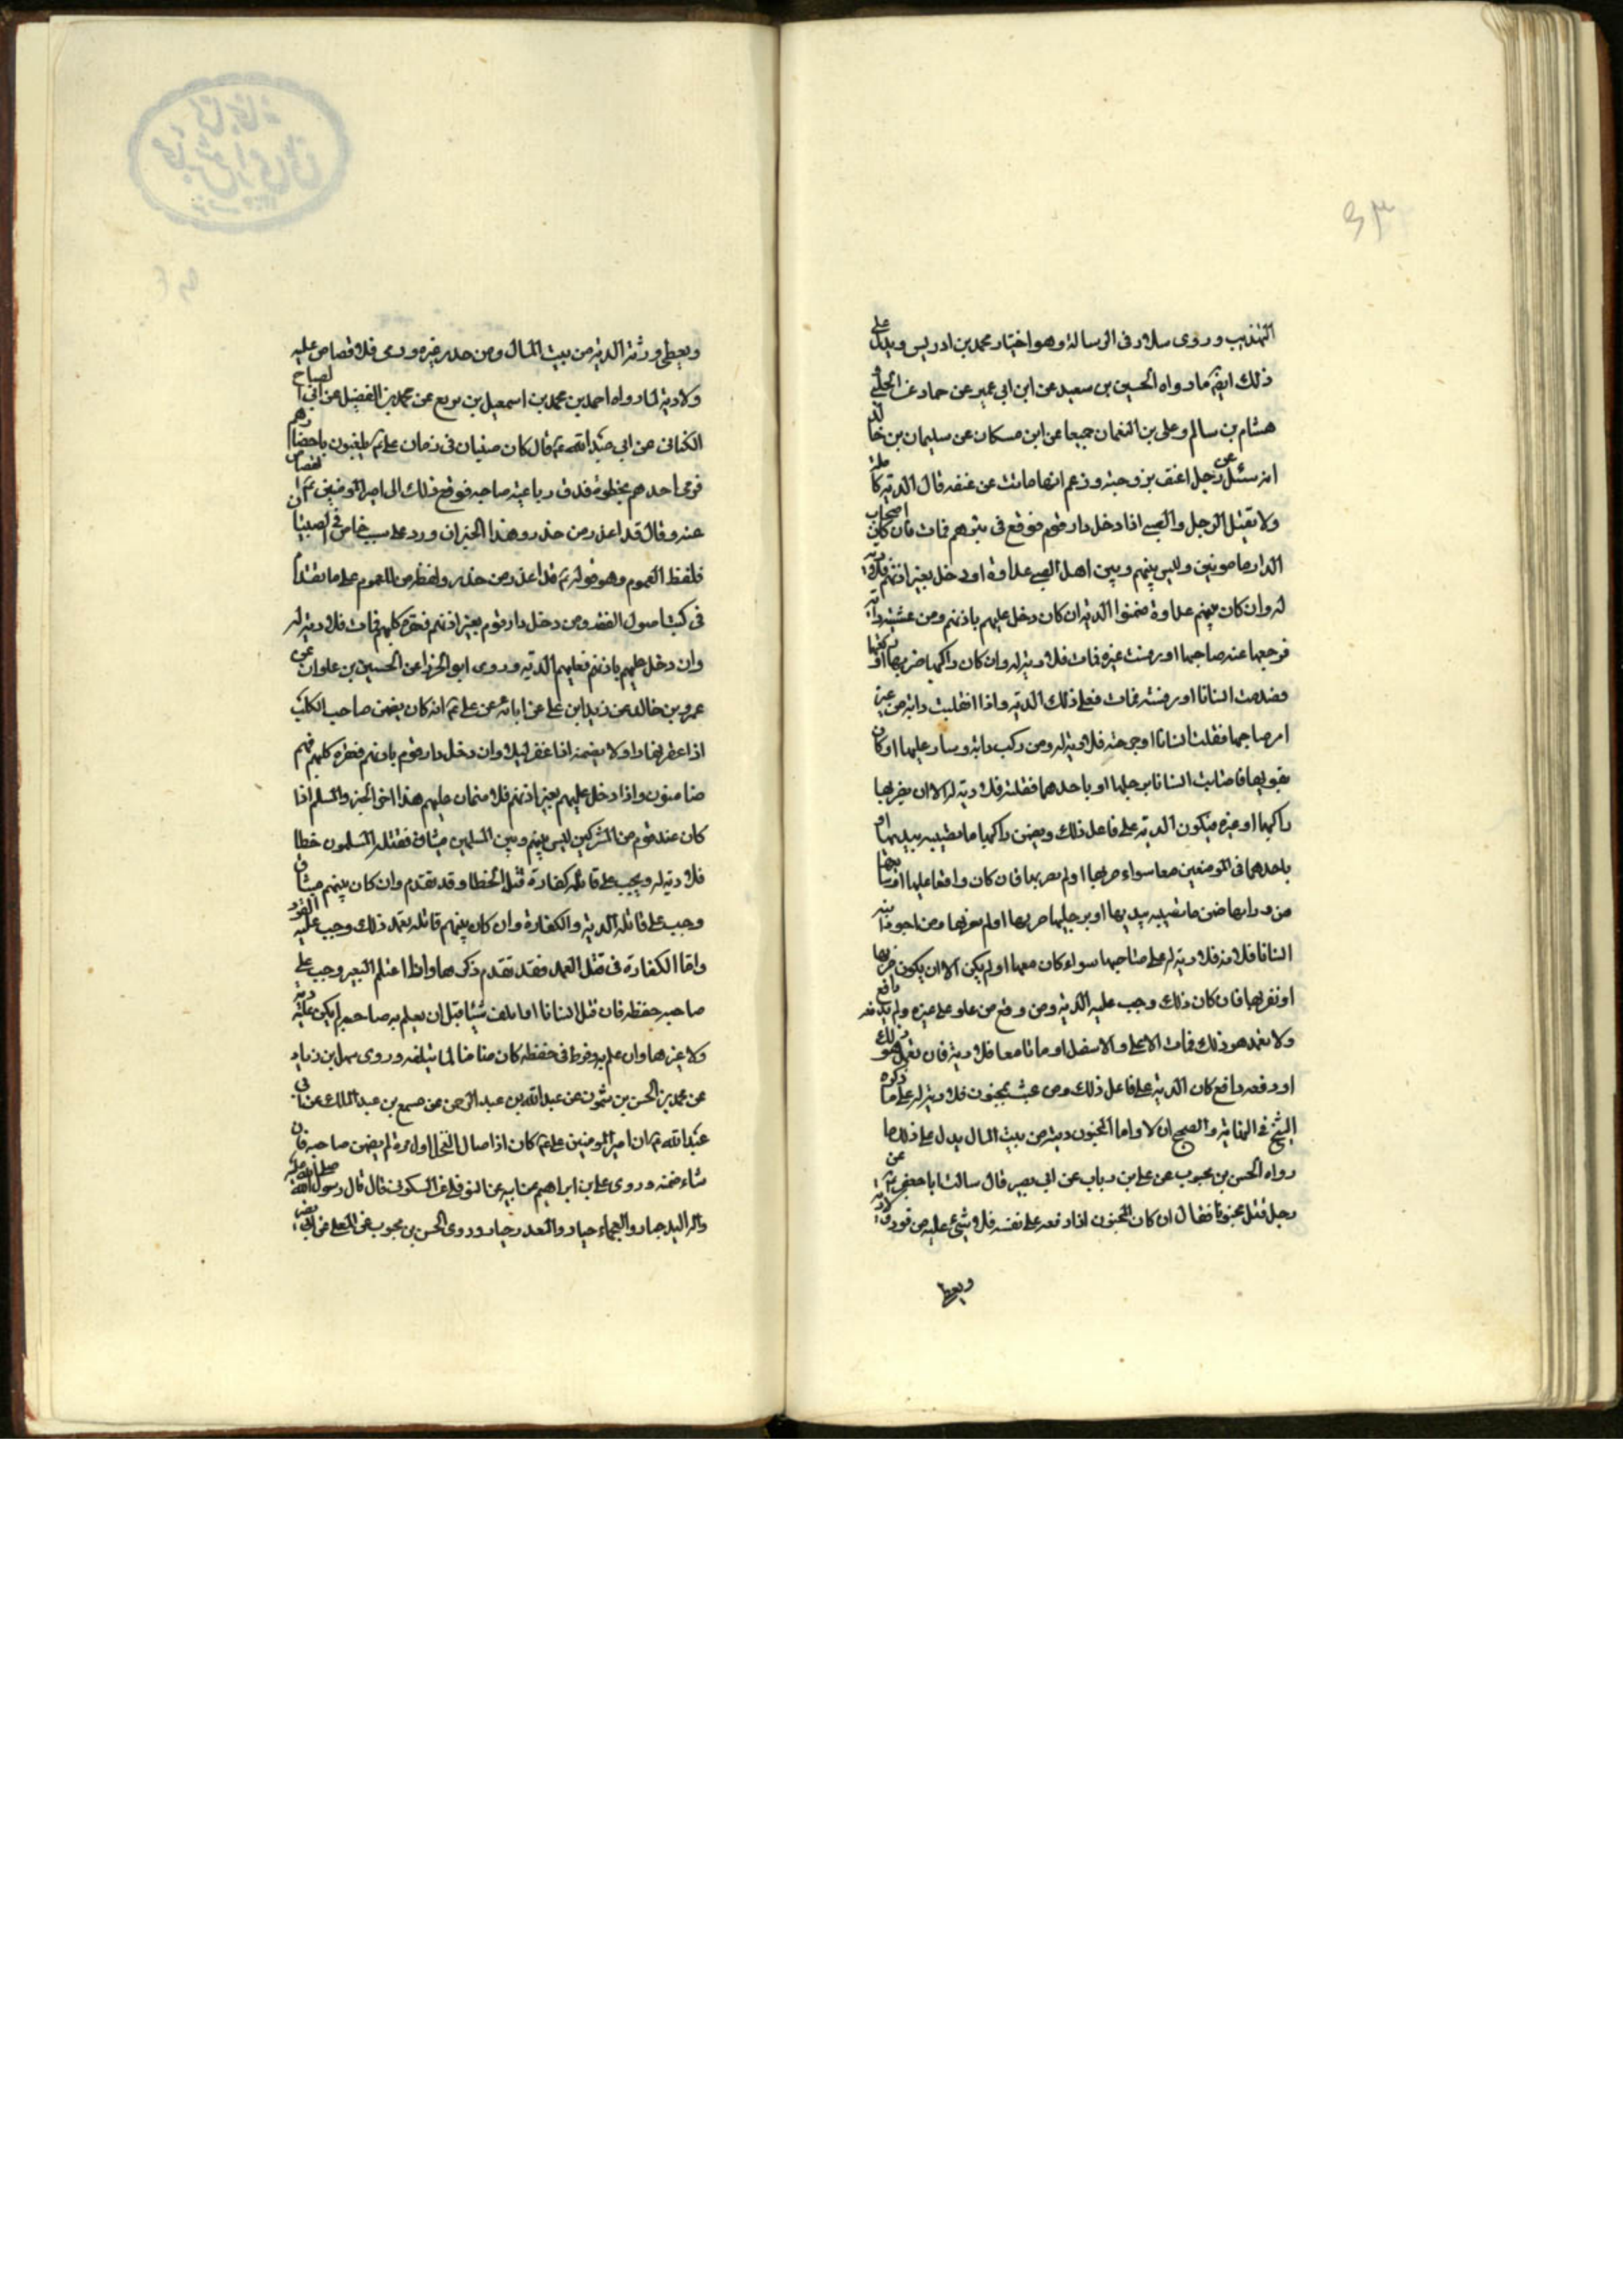 ٤٣
التهذيب وروى سلار فى الرسالة وهو اختيار محمد بن ادريس ويدل على
ذلك ايضا ما رواه الحسين بن سعيد عن ابن ابى عمير عن حماد عن الحلبى و
هشام بن سالم وعلى بن النعمان جميعا عن ابن مسكان عن سليمان بن خالد
انه سئل عن رجل اعنف بزوجته وزعم انها ماتت عن عنفه قال الدية كاملة
ولا يقتل الرجل والصبى اذا دخل دار قوم فوقع فى بئرهم فمات فان كان اصحاب
الدار مامونين وليس بينهم وبين اهل الصبى عداوة او دخل بغير اذنهم فلا دية
له وان كان بينهم عداوة ضمنوا الدية ان كان دخل عليهم باذنهم ومن غشيته دابة
فزجعها عند صاحبها او رفست غيره فمات فلا دية له وان كان راكبها ضربها او
فصدمت انسانا او رفسته فمات فعلى ذلك الدية واذا انفلتت دابة من غير
امر صاحبها فقتلت انسانا او جرحته فلا دية له ومن ركب دابة وسار عليها او كان
يقودها فاصابت انسانا برجلها او باحدهما فقتلته فلا دية له الا ان يضربها
راكبها او غيره فيكون الدية على فاعل ذلك ويضمن راكبها ما تصيبه بيديها او
باحدهما فى الموضعين معا سواء ضربها او لم يضربها فان كان واقفا عليها او
من ورائها ضمن ما تصيبه بيديها او برجليها ضربها او لم يضربها ومن اجر دابته
انسانا فلا دية له على صاحبها سواء كان معها او لم يكن الا ان يكون ضربها
او نفر بها فان كان ذلك وجب عليه الدية ومن وقع من علو على غيره ولم يدفعه دافع
ولا تعمد هو ذلك فمات الاعلى والاسفل او ماتا معا فلا دية فان تعمد هو ذلك
او دفعه دافع كان الدية على فاعل ذلك ومن عبث بمجنون فلا دية له على ما ذكره
الشيخ فى النهاية والصحيح ان لا واما المجنون ديته من بيت المال يدل على ذلك ما
رواه الحسن بن محبوب عن على بن رباب عن ابى بصير قال سالت ابا جعفر عن
رجل قتل مجنونا فقال ان كان المجنون اراده فدفعه على نفسه فلا شىء عليه من قود ولا دية
ويعطى
ويعطى ورثته الدية من بيت المال ومن حذر غيره ورمى فلا قصاص عليه
ولا دية لما رواه احمد بن محمد بن اسمعيل بن بزيع عن محمد بن الفضيل عن ابى الصباح
الكنانى عن ابى عبد الله ع قال كان صبيان فى زمان على ع يلعبون باخطارهم
فرمى احدهم بخطره فدق رباعية صاحبه فرفع ذلك الى امير المؤمنين ع
عنه وقال قد اعذر من حذر وهذا الخبر ان ورد على سبب خاص فى الصبيان
فلفظ العموم وهو قوله ع قد اعذر من حذر على ما تقدم
فى كتب اصول الفقه ومن دخل دار قوم بغير اذنهم فعقره كلبهم فمات فلا دية له
وان دخل عليهم باذنهم فعليهم الدية وروى ابو الخزرج عن الحسين بن علوان عن
عمرو بن خالد عن زيد ابن على عن ابائه عن على ع انه كان يضمن صاحب الكلب
اذا عقر نهارا ولا يضمنه اذا عقر ليلا وان دخل دار قوم باذنهم فعقره كلبهم فهم
ضامنون واذا دخل عليهم بغير اذنهم فلا ضمان عليهم هذا اخر الخبر والمسلم اذا
كان عند قوم من المشركين ليس بينهم وبين المسلمين ميثاق فقتله المسلمون خطا
فلا دية له ويجب على قاتله كفارة قتل الخطا وقد تقدم وان كان بينهم ميثاق
وجب على قاتله الدية والكفارة وان كان بينهم قاتله تعمد ذلك وجب عليه القود
واما الكفارة فى قتل العمد فقد تقدم ذكرها واذا اغتلم البعير وجب على
صاحبه حفظه فان قتل انسانا او اتلف شيئا قبل ان يعلم به صاحبه لم يكن عليه دية
ولا غيرها وان علم به وفرط فى حفظه كان ضامنا لما يتلفه وروى سهل ابن زياد
عن محمد بن الحسن بن شمون عن عبد الله بن عبد الرحمن عن مسمع بن عبد الملك عن ابى
عبد الله ع ان امير المومنين على ع كان اذا صال الفحل اول مرة لم يضمن صاحبه فان
ثناه ضمنه وروى على بن ابراهيم عن ابيه عن النوفلى عن السكونى قال قال رسول الله صلى الله عليه
واله البئر جبار والعجماء جبار والمعدن جبار وروى الحسن بن محبوب عن المعلى عن ابى بصير